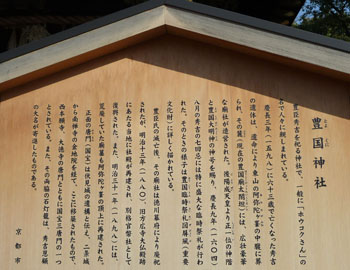 豊国神社
とよくに
豊臣秀吉を祀る神社で、一般に「ホウコクさん」の
名で人々に親しまれている。
慶長三年(一五九八)に六十三歳で亡くなった秀吉
の遺体は、遺命により東山の阿弥陀ヶ峯の中腹に葬
られ、その麓(現在の豊国廟太閤坦)には、広壮豪華
な廟社が造営された。後陽成天皇より正一位の神階
と豊国大明神の神号を賜り、慶長九年(一六〇四)
八月の秀吉の七回忌には特に盛大な臨時祭礼が行わ
れた。そのときの様子は豊国臨時祭礼図屏風(重要
文化財)に詳しく描かれている。
豊臣氏の滅亡後、その廟社は徳川幕府により廃祀
されたが、明治十三年(一八八〇)、旧方広寺大仏殿跡
にあたる当地に社殿が再建され、別格官幣社として
復興された。また、明治三十一年(一八九八)には、
荒廃していた廟墓も阿弥陀ヶ峯の頂上に再建された。
正面の唐門(国宝)は伏見城の遺構と伝え、二条城
から南禅寺の金地院を経て、ここに移築されたもので、
西本願寺、大徳寺の唐門とともに国宝三唐門の一つ
とされている。また、その両脇の石灯籠は、秀吉恩顧
の大名が寄進したものである。
京都市